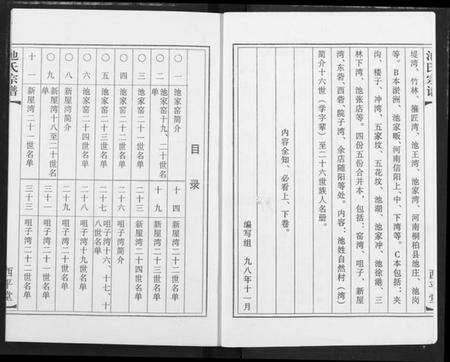 池氏宗谱
西平堂
堤湾、竹林、礓匠湾、池王湾、池家湾、河南桐柏县池庄、池岗
等。B本淤洲、池家畈、河南信阳上、中、下湾等。C本包括：夹
沟、楼子、冲湾、五家坟、五花坟、池湖、池家冲、池徐谢、三
林下湾、池张店等。四份五份合并本，包括：窑湾、咀子、新屋
湾、东砦、西砦、皖子湾、余店随阳等处。内容：池姓自然村（湾）
简介十六世（学字辈）至二十六世族人名册。
内容全知，必看上、下卷。
编写组 九八年十一月
目录
〇一 池家窑简介
〇二 池家窑十九、二十世名单
〇三 池家窑二十一世名单
〇四 池家窑二十二世名单
〇五 池家窑二十三世名单
〇六 池家窑二十四世名单
〇八 新屋湾简介
〇九 新屋湾十八至二十世名单
十一 新屋湾二十一世名单
十四 新屋湾二十二世名单
十九 新屋湾二十三世名单
二三 新屋湾二十四世名单
二六 咀子湾简介
二七 咀子湾十六、十七、十八世名单
二八 咀子湾十九世名单
二九 咀子湾二十世名单
三一 咀子湾二十一世名单
三三 咀子湾二十二世名单
池氏宗谱
西平堂